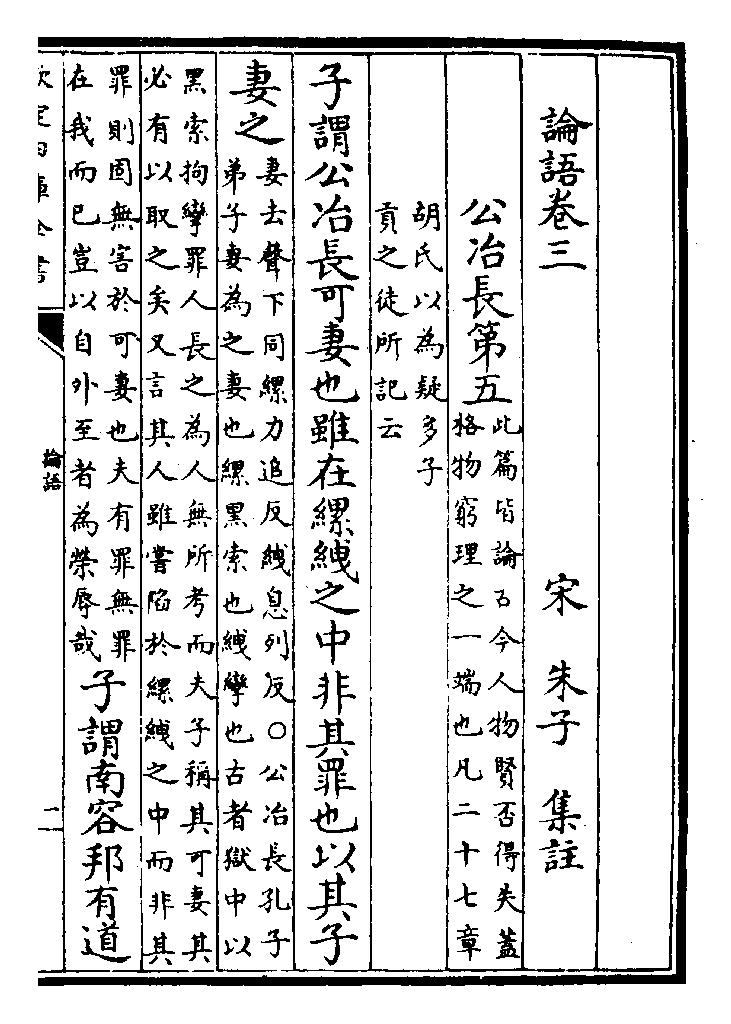 論語卷三
宋 朱子 集註
公冶長第五
此篇皆論古今人物賢否得失蓋
格物窮理之一端也凡二十七章
胡氏以為疑多子
貢之徒所記云
子謂公冶長可妻也雖在縲絏之中非其罪也以其子
妻之
妻去聲下同縲力追反絏息列反○公冶長孔子
弟子妻為之妻也縲黑索也絏攣也古者獄中以
黑索拘攣罪人長之為人無所考而夫子稱其可妻其
必有以取之矣又言其人雖嘗陷於縲絏之中而非其
罪則固無害於可妻也夫有罪無罪
在我而已豈以自外至者為榮辱哉
子謂南容邦有道
欽定四庫全書
論語